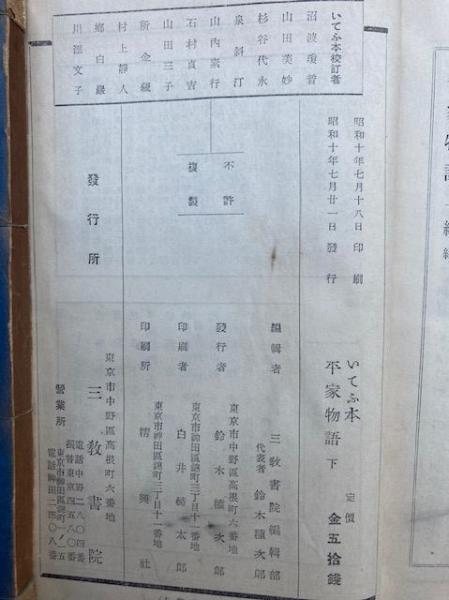 いてふ本
平家物語 下
定價 金五拾錢
昭和十年七月十八日印刷
昭和十年七月廿一日發行
編輯者 三教書院編輯部
代表者 鈴木種次郎
東京市中野區高根町六番地
發行者 鈴木種次郎
東京市神田區錦町三丁目十一番地
印刷者 白井 太郎
東京市神田區錦町三丁目十一番地
印刷所 精興社
不許
複製
發行所
東京市中野區高根町六番地
三教書院
電話中野二八〇四番
振替東京四五八〇番
營業所
東京市神田區錦町一ノ五
電話神田二四〇八番
いてふ本校訂者
沼波瓊音
山田美妙
杉谷代水
泉斜汀
山内素行
石村貞吉
山田三子
所金藏
村上靜人
鄉白巖
川瀨文子